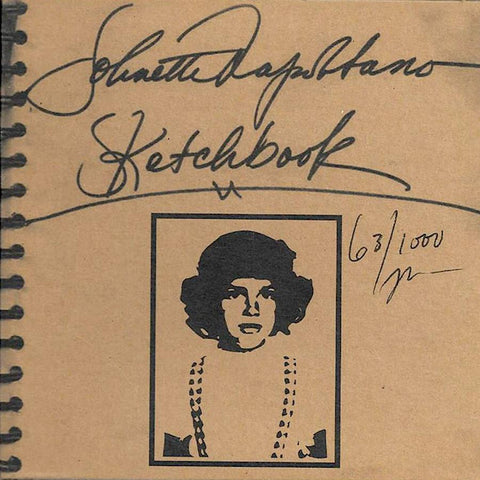 Johnette Napolitano
Sketchbook
63/1000
jn